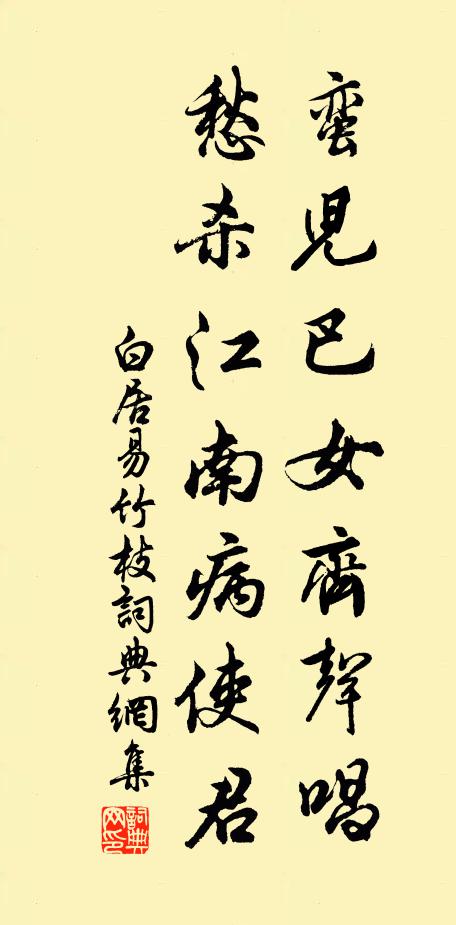 蛮兒巴女齊聲唱
愁杀江南病使君
白居易竹枝詞典網集
詞典网印